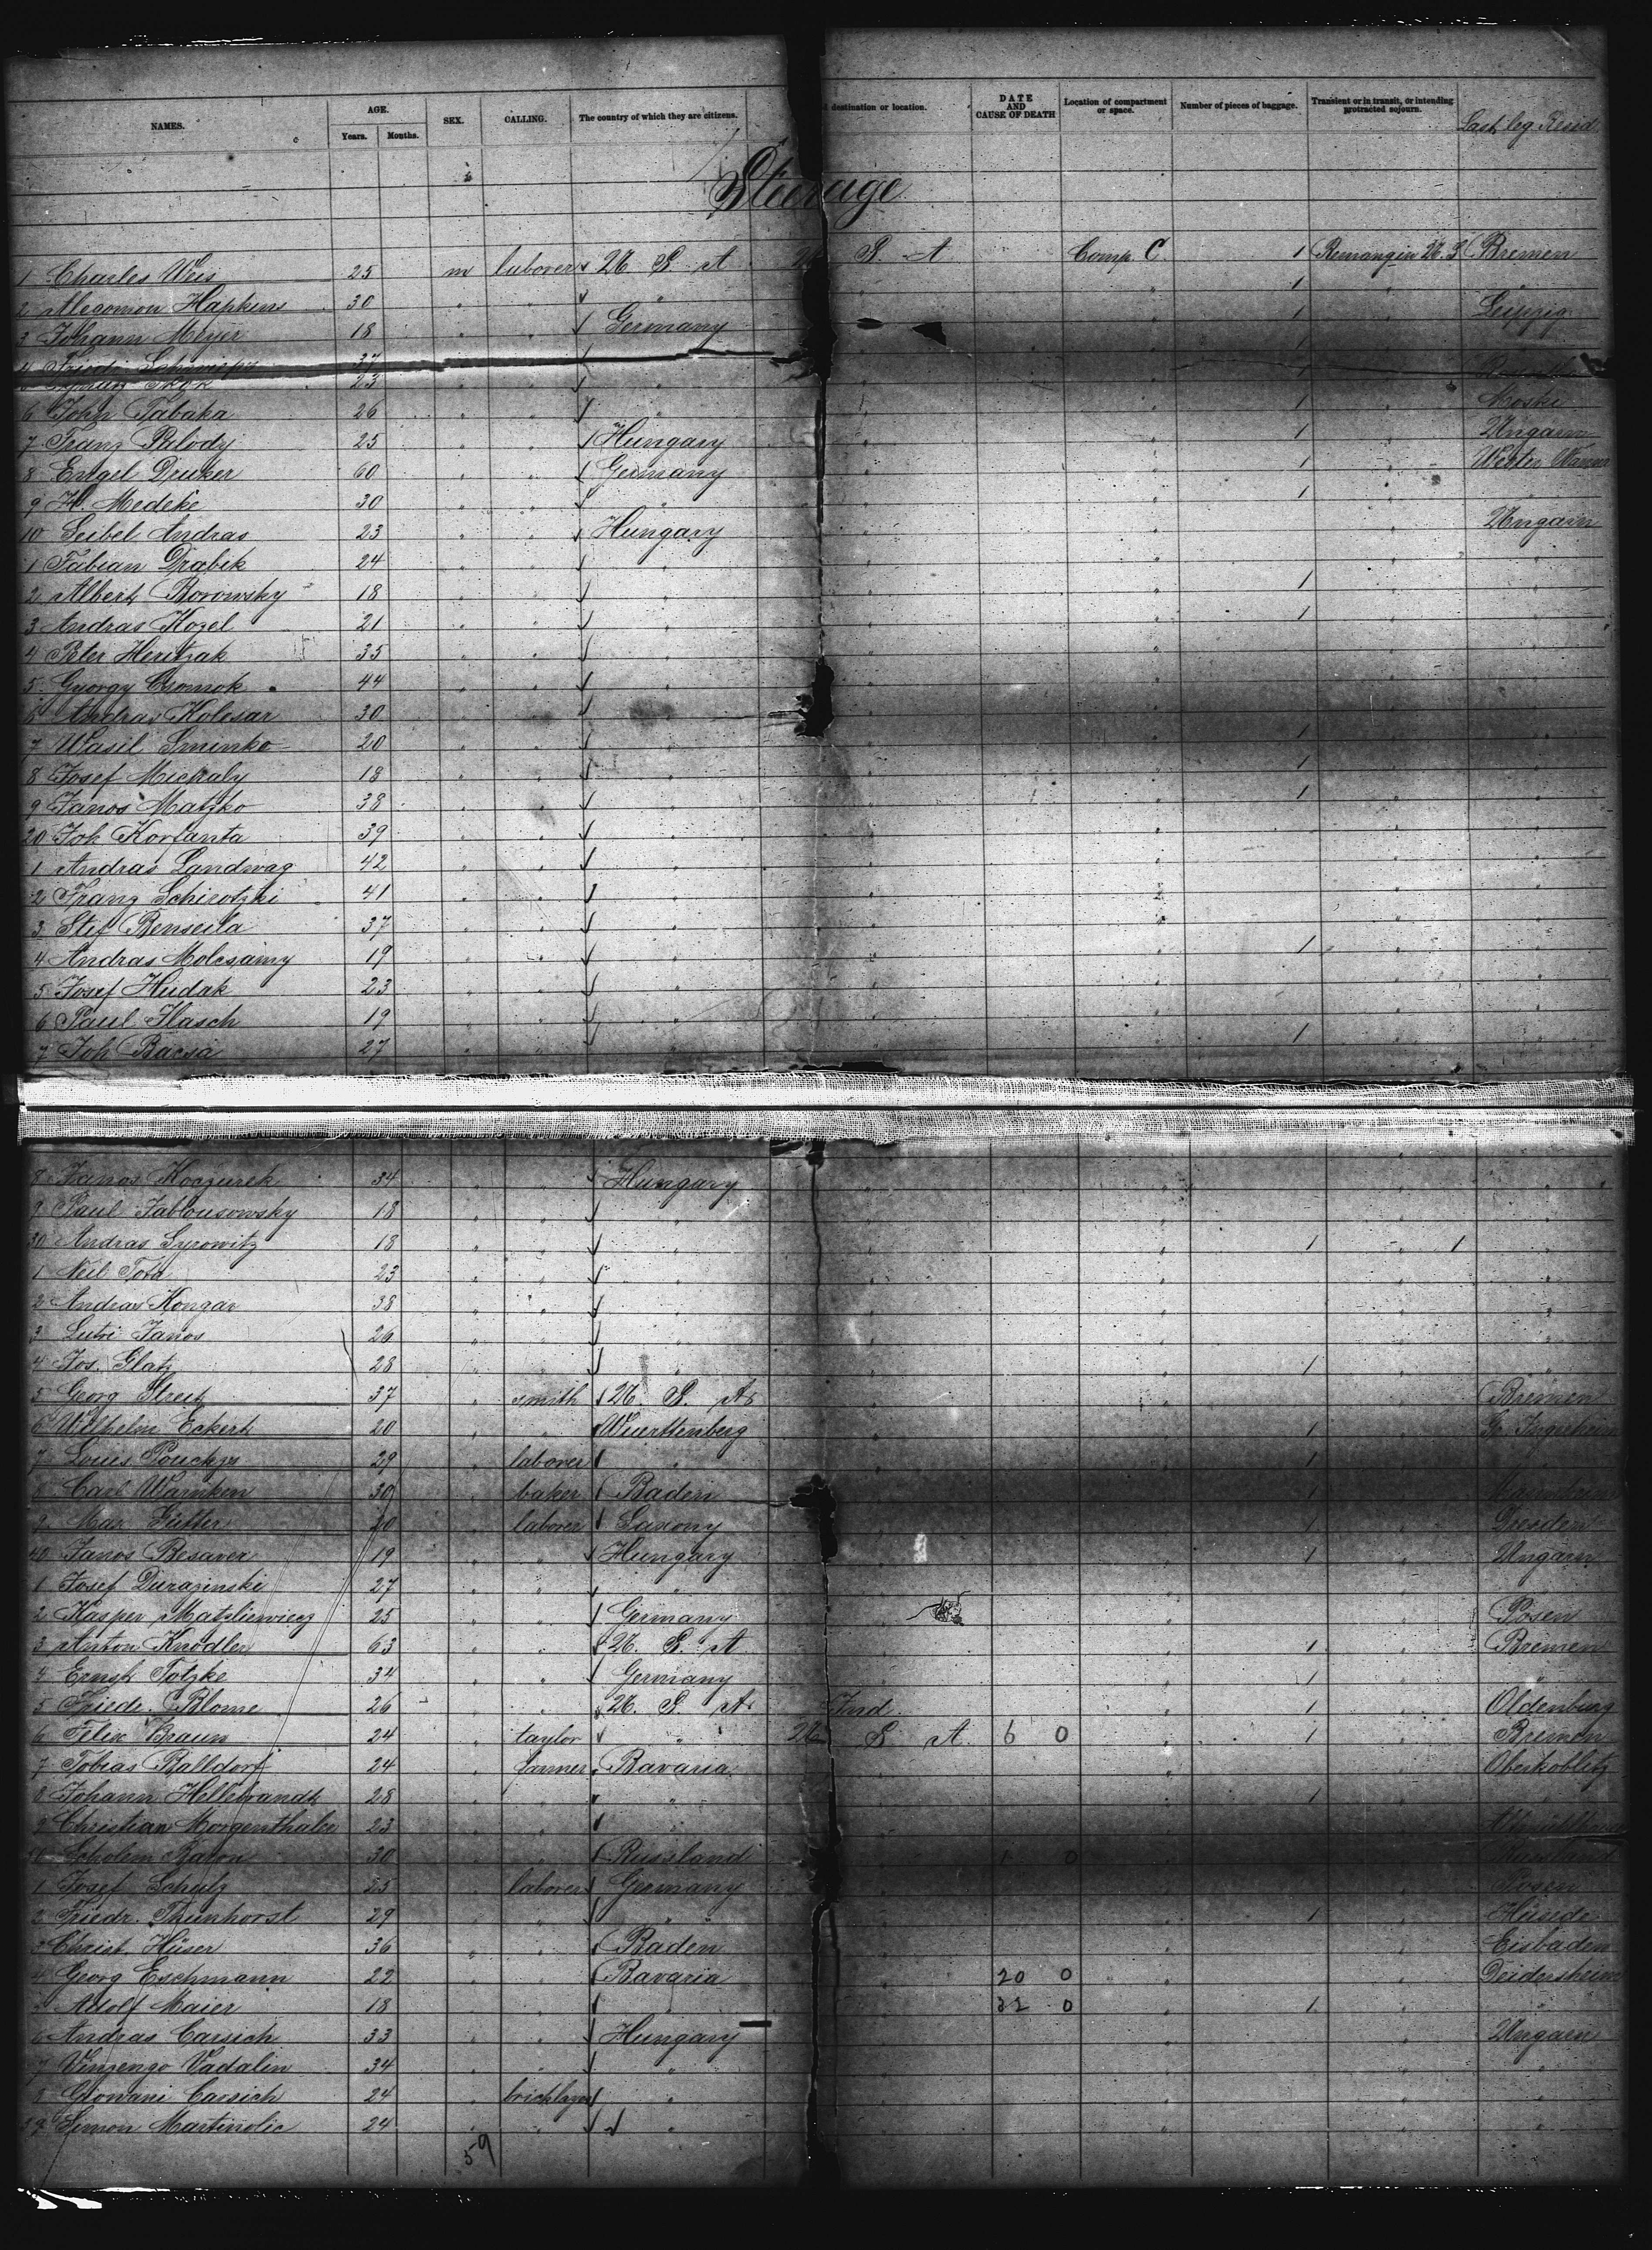 NAMES. AGE. Years. Months. SEX. CALLING. The country of which they are citizens. destination or location. DATE AND CAUSE OF DEATH Location of compartment or space. Number of pieces of baggage. Transient or in transit, or intending protracted sojourn. Last leg. Resid
Steerage
1 Charles Weis 25 m laborer U. S. A U S. A Comp. C 1 Remang in U. S. Bremen
2 Hapkins 30 " " " " " 1 "
3 Johann Meyer 18 " " Germany " " 1 " Leipzig
4 37 " " " " 1
23 " " " " " 1
6 John Tabaka 26 " " " " " 1 " Moski
7 Franz Palody 25 " " Hungary " " 1 " Ungarn
8 Engel Druker 60 " " Germany " " 1 "
9 H. Medeke 30 " " " " " 1 " "
10 Leibel Andras 23 " " Hungary " " " Ungarn
1 Fabian Drabik 24 " " " " " " "
2 Albert Borowsky 18 " " " " " 1 " "
3 Andras Kozel 21 " " " " " 1 " "
4 Peter Heritzak 35 " " " " " " "
5 Gyorgy Csomok 44 " " " " " " "
6 Andras Kolesar 30 " " " " " " "
7 Wasil Sminko 20 " " " " " 1 " "
8 Josef Michaly 18 " " " " " 1 " "
9 Janos Matzko 38 " " " " " 1 " "
20 Joh Korfanta 39 " " " " " " "
1 Andras Landwag 42 " " " " " " "
2 Franz Schirotzki 41 " " " " " " "
3 Stef Benseila 37 " " " " " " "
4 Andras Molcsamy 19 " " " " " 1 " "
5 Josef Hudak 23 " " " " " " "
6 Paul Hasch 19 " " " " " " "
7 Joh Bacsa 27 " " " " " 1 " "
8 Janos Koczurek 34 " " Hungary " " " "
9 Paul Jablousowsky 18 " " " " " " "
30 Andras Syrowitz 18 " " " " " 1 " 1 "
1 Neil Tota 23 " " " " " " "
2 Andras Kongar 38 " " " " " " "
3 Lutri Janos 26 " " " " " " "
4 Jos. Glatz 28 " " " " " 1 " "
5 Georg Streit 37 " smith U. S. A. " " " Bremen
6 Wilhelm Eckert 20 " " Wuerttenberg " " 1 " Gr. Ingersheim
7 Louis 29 " laborer " " " 1 "
8 Carl Warnken 30 " baker Baden " " 1 " Mannheim
9 Max Gütter " laborer Saxony " " 1 " Dresden
40 Janos Besaver 19 " " Hungary " " 1 " Ungarn
1 Josef Durazinski 27 " " " " " " "
2 Kasper Matzliewicz 25 " " Germany " " Posen
3 Anton Knödler 63 " " U. S. A " " 1 " Bremen
4 Ernst Totzke 34 " " Germany " " 1 " "
5 Friedr. Blome 26 " " U. S. A. Ind. " 1 " Oldenburg
6 Felix Braun 24 " taylor " U S A 6 0 " 1 " Bremen
7 Tobias Balldorf 24 " farmer Bavaria " " " Oberkoblitz
8 Johann Hellebrandt 28 " " " " " 1 " "
9 Christian Morgenthaler 23 " " " " " "
50 Scholem Baron 30 " " Russland " 1 0 " " Russland
1 Josef Schulz 25 " laborer Germany " " " Posen
2 Friedr. Thunhorst 29 " " " " " 1 " Hüsede
3 Christ. Hüser 36 " " Baden " " " Eisbaden
4 Georg Eschmann 22 " " Bavaria " 20 0 " " Deidersheim
5 Adolf Maier 18 " " " " 32 0 " 1 " "
6 Andras Carsich 33 " " Hungary " " " Ungarn
7 Vinzengo Vadalin 34 " " " " " " "
8 Giowani Carsich 24 " bricklayer " " " " "
59 Simon Martinolic 24 " " " " " " "
59